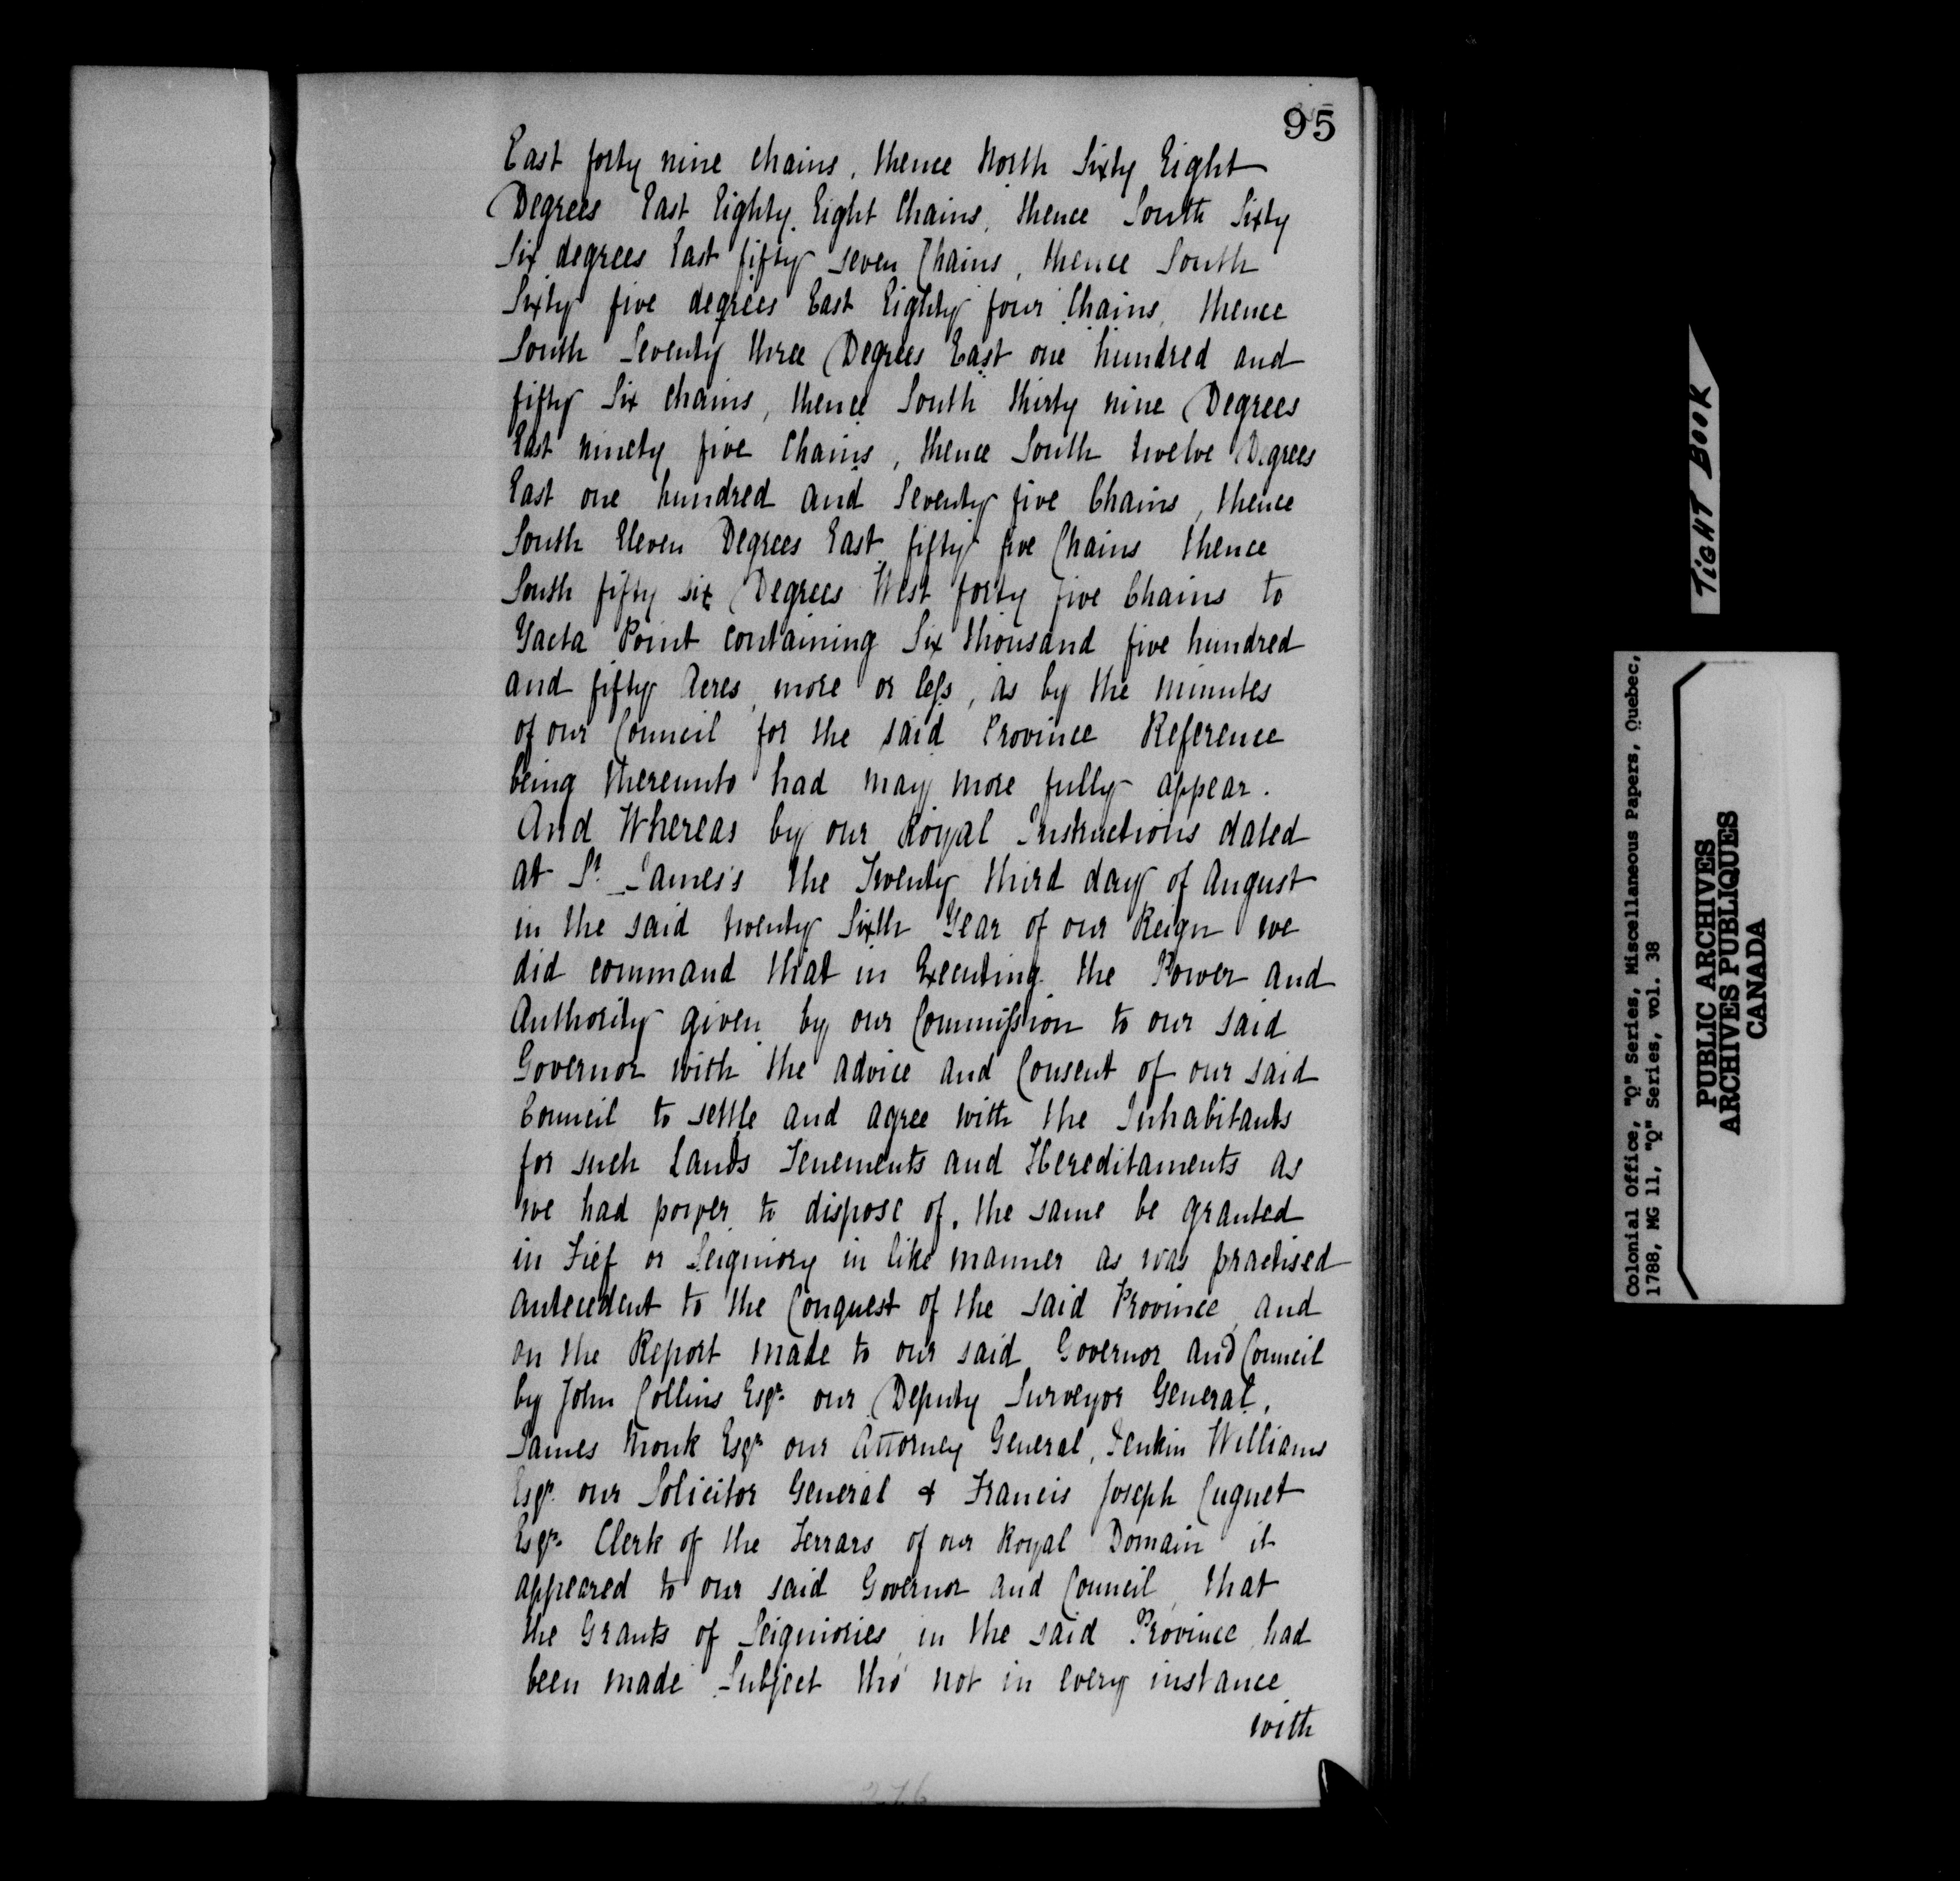 95
East forty nine chains, thence North Sixty Eight
Degrees East Eighty Eight Chains, thence South Sixty
Six degrees East fifty seven Chains, thence South
Sixty five degrees East Eighty four Chains, thence
South Seventy three Degrees East one hundred and
fifty Six chains, thence South thirty nine Degrees
East ninety five Chains, thence South twelve Degrees
East one hundred and Seventy five Chains, thence
South Eleven Degrees East fifty five Chains thence
South fifty six Degrees West forty five Chains to
Yacta Point containing Six thousand five hundred
and fifty Acres, more or less, as by the minutes
of our Council for the said Province Reference
being thereunto had may more fully appear.
And Whereas by our Royal Instructions dated
at St. James's the Twenty third day of August
in the said twenty Sixth Year of our Reign we
did command that in Executing the Power and
Authority given by our Commission to our said
Governor with the advice and Consent of our said
Council to settle and agree with the Inhabitants
for such Lands Tenements and Hereditaments as
we had power to dispose of, the same be granted
in Fief or Seigniory in like manner as was practised
antecedent to the Conquest of the said Province, and
on the Report made to our said Governor and Council
by John Collins Esqr. our Deputy Surveyor General,
James Monk Esqr. our Attorney General, Jenkin Williams
Esqr. our Solicitor General & Francis Joseph Cugnet
Esqr. Clerk of the Terrars of our Royal Domain it
appeared to our said Governor and Council, that
the Grants of Seigniories in the said Province had
been made Subject tho' not in every instance
with
276
TIGHT BOOK
Colonial Office, "Q" Series, Miscellaneous Papers, Quebec,
1788, MG 11, "Q" Series, vol. 38
PUBLIC ARCHIVES
ARCHIVES PUBLIQUES
CANADA